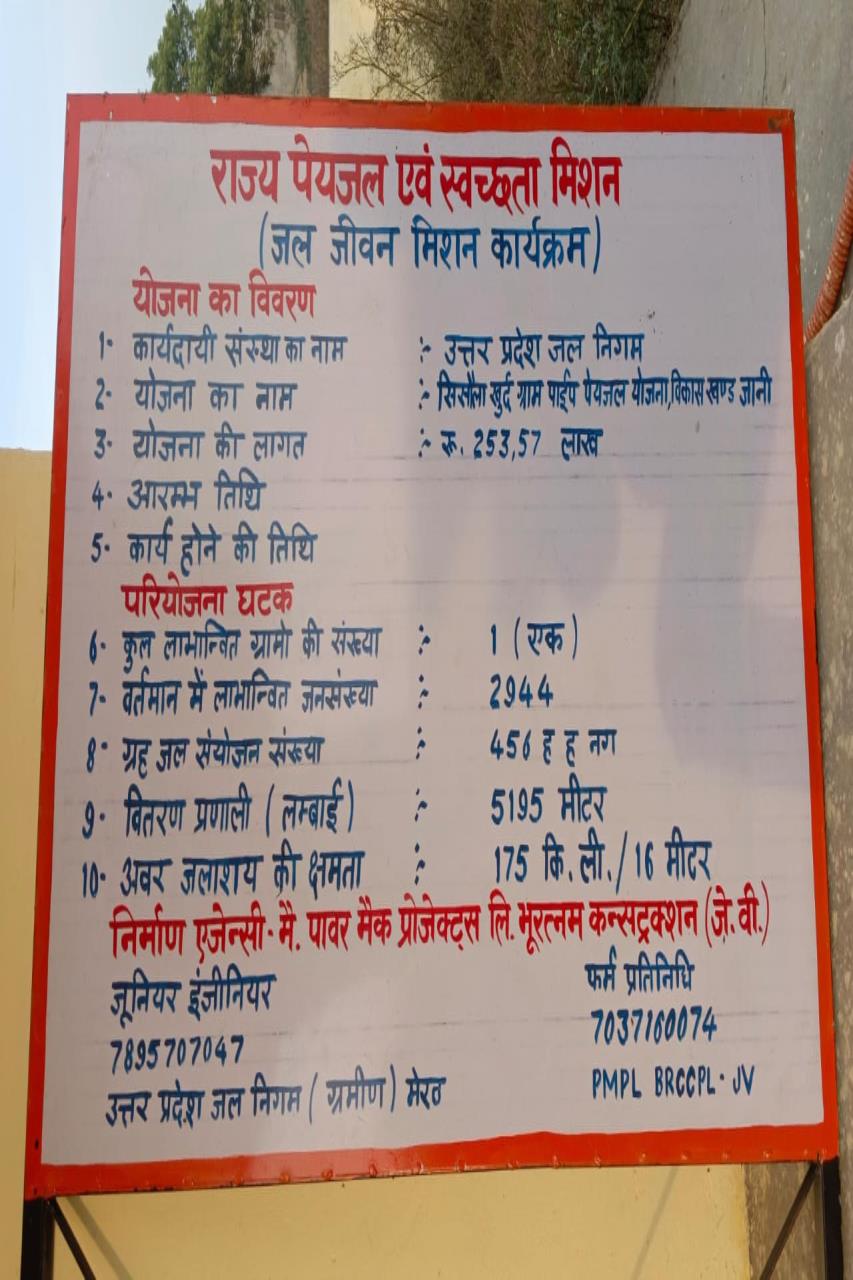 राज्य पेयजल एवं स्वच्छता मिशन
(जल जीवन मिशन कार्यक्रम)
योजना का विवरण
1- कार्यदायी संस्था का नाम :- उत्तर प्रदेश जल निगम
2- योजना का नाम :- सिसौला खुर्द ग्राम पाईप पेयजल योजना, विकास खण्ड जानी
3- योजना की लागत :- रू. 253,57 लाख
4- आरम्भ तिथि
5- कार्य होने की तिथि
परियोजना घटक
6- कुल लाभान्वित ग्रामो की संख्या :- 1 (एक)
7- वर्तमान में लाभान्वित जनसंख्या :- 2944
8- ग्रह जल संयोजन संख्या :- 456 ह ह नग
9- वितरण प्रणाली (लम्बाई) :- 5195 मीटर
10- अवर जलाशय की क्षमता :- 175 कि.ली./16 मीटर
निर्माण एजेन्सी- मै. पावर मैक प्रोजेक्ट्स लि. भूरत्नम कन्सट्रक्शन (जे.वी.)
जूनियर इंजीनियर
7895707047
उत्तर प्रदेश जल निगम (ग्रमीण) मेरठ
फर्म प्रतिनिधि
7037160074
PMPL BRCCPL-JV